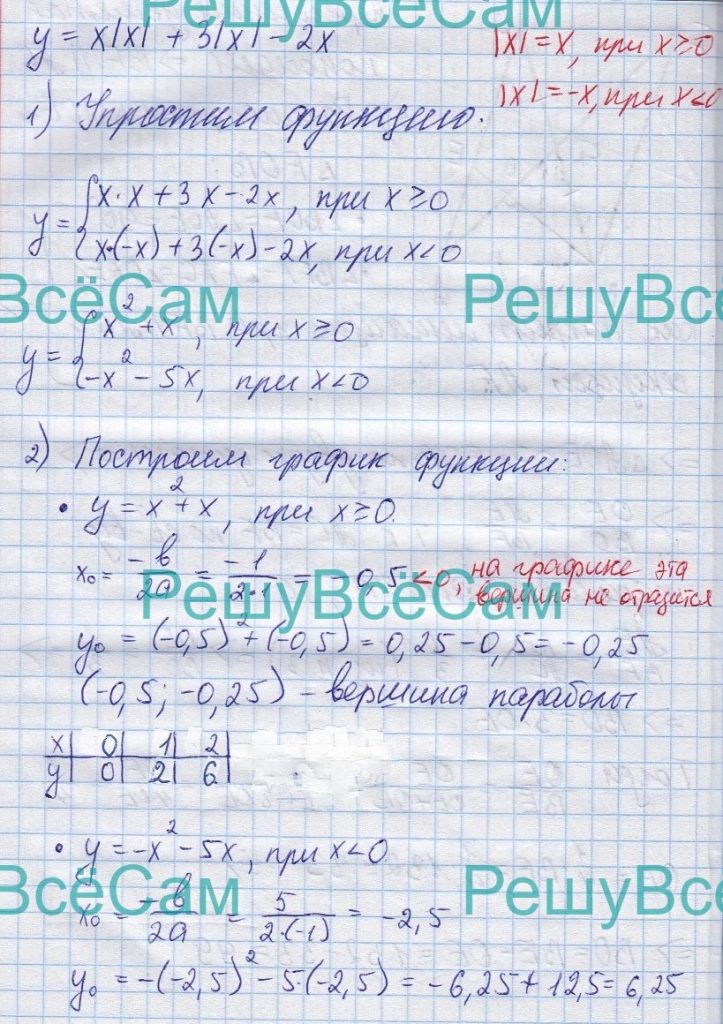 РешуВсёСам
y = x|x| + 3|x| - 2x
|x| = x, при x ≥ 0
|x| = -x, при x < 0
1) Упростим функцию.
y = { x·x + 3x - 2x, при x ≥ 0
x·(-x) + 3(-x) - 2x, при x < 0
ВсёСам РешуВсё
y = { x² + x, при x ≥ 0
-x² - 5x, при x < 0
2) Построим график функции:
• y = x² + x, при x ≥ 0.
x₀ = -в/2а = -1/2·1 = -0,5 < 0, на графике эта вершина не отразится
РешуВсёСам
y₀ = (-0,5)² + (-0,5) = 0,25 - 0,5 = -0,25
(-0,5; -0,25) - вершина параболы
x | 0 | 1 | 2
y | 0 | 2 | 6
• y = -x² - 5x, при x < 0
ВсёСам РешуВсё
x₀ = -в/2а = 5/2·(-1) = -2,5
y₀ = -(-2,5)² - 5·(-2,5) = -6,25 + 12,5 = 6,25